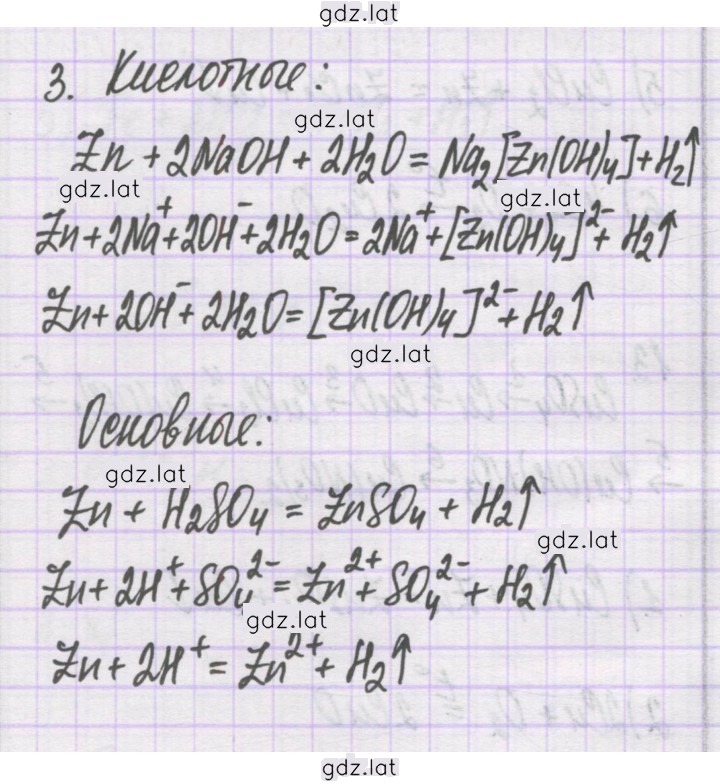 gdz.lat
3. Кислотные:
gdz.lat
Zn + 2NaOH + 2H₂O = Na₂[Zn(OH)₄] + H₂↑
gdz.lat
gdz.lat
Zn + 2Na⁺ + 2OH⁻ + 2H₂O = 2Na⁺ + [Zn(OH)₄]²⁻ + H₂↑
Zn + 2OH⁻ + 2H₂O = [Zn(OH)₄]²⁻ + H₂↑
gdz.lat
Основные:
gdz.lat
Zn + H₂SO₄ = ZnSO₄ + H₂↑
gdz.lat
Zn + 2H⁺ + SO₄²⁻ = Zn²⁺ + SO₄²⁻ + H₂↑
gdz.lat
Zn + 2H⁺ = Zn²⁺ + H₂↑
gdz.lat